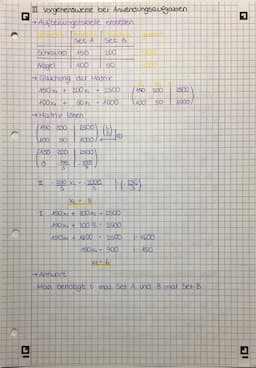 III Vorgehensweise bei Anwendungsaufgaben
→ Aufstellungstabelle erstellen
Set A Set B
Schrauben 150 200
Nägel 100 50
→ Gleichung auf Matrix
150x₁ + 200x₂ = 2500 (150 200 | 2500)
100x₁ + 50x₂ = 1000 (100 50 | 1000)
→ Matrix lösen
(150 200 | 2500)
(100 50 | 1000)
(150 200 | 2500)
x₂ = 8
I 150x₁ + 200x₂ = 2500
150x₁ + 200·8 = 2500
150x₁ + 1600 = 2500 |-1600
150x₁ = 900 |:150
x₁ = 6
→ Antwort
Man benötigt 6 mal Set A und 8 mal Set B.